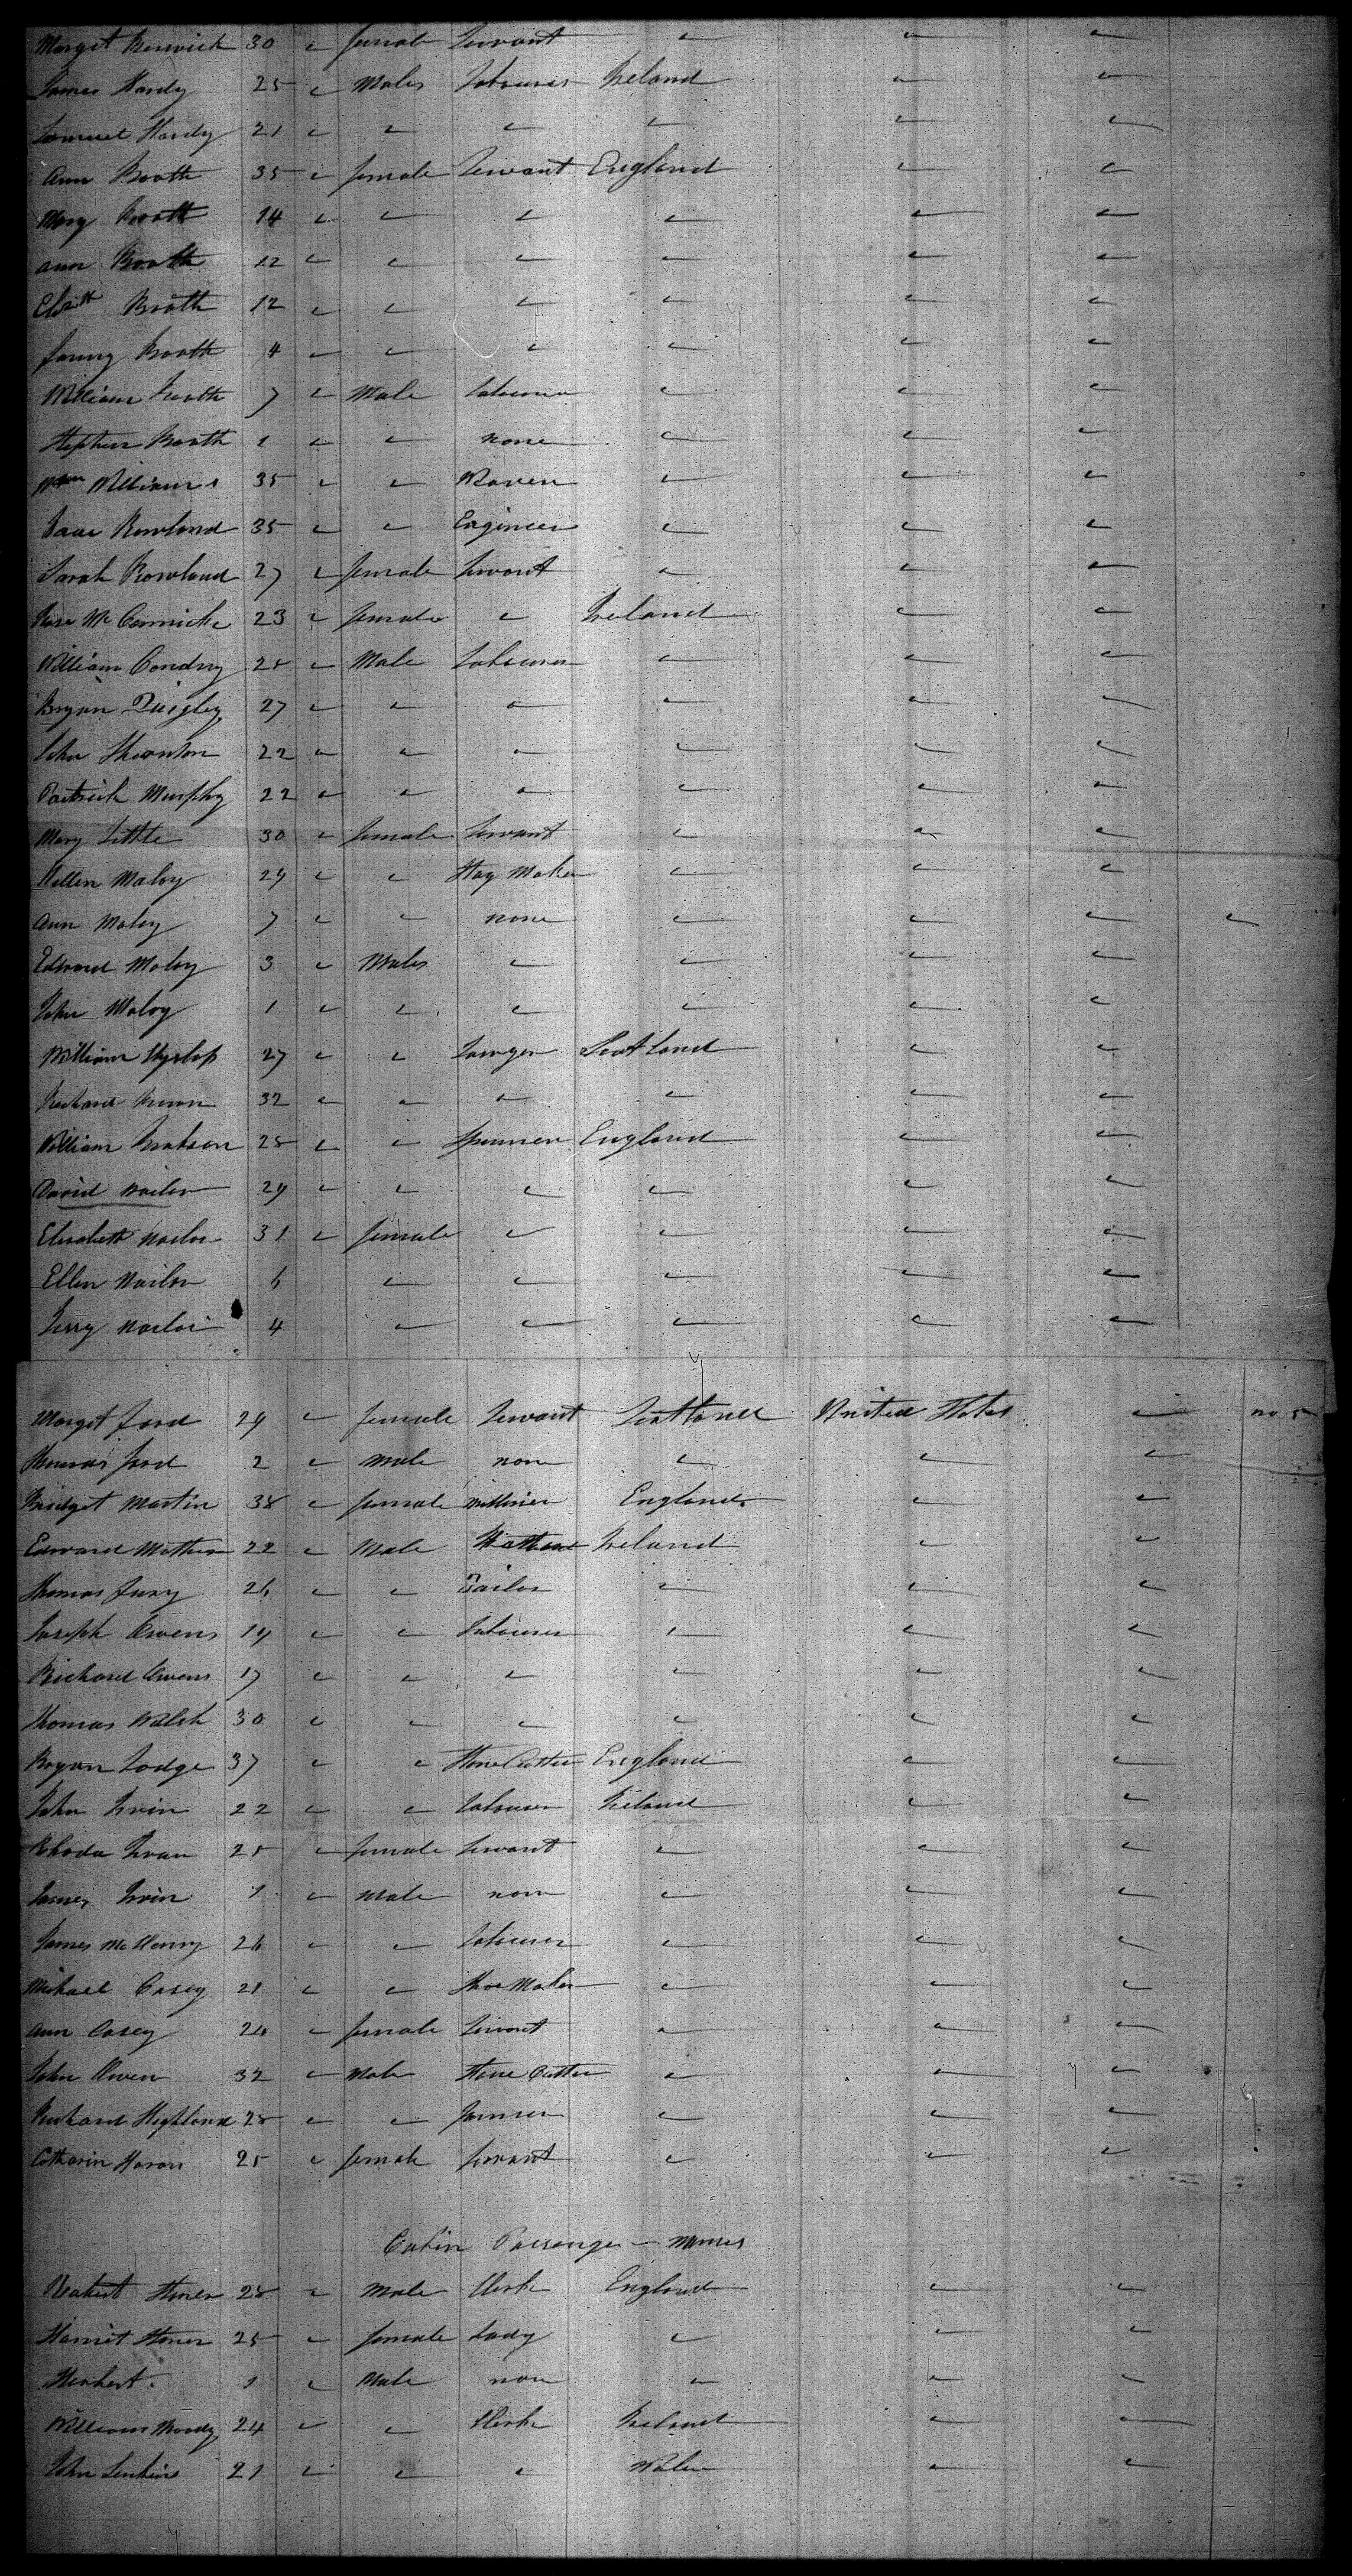 Margt Berwick 30 " female Servant " " "
James Hardy 25 " Males Labourer Ireland " "
Samuel Hardy 21 " " " " " "
Ann Booth 35 " female Servant England " "
Mary Booth 14 " " " " " "
ann Booth 12 " " " " " "
Elizth Booth 12 " " " " " "
fanny Booth 4 " " " " " "
William Booth 7 " Male Labourer " " "
Stephen Booth 1 " " none " " "
Wm Williams 35 " " Waver " " "
Isaac Rowland 35 " " Engineer " " "
Sarah Rowland 27 " female Servant " " "
Rose Mc Cormicke 23 " female " Ireland " "
William Condry 25 " Male Labourer " " "
Bryan Quigley 27 " " " " " "
John Thornton 22 " " " " " "
Patrick Murphy 22 " " " " " "
Mary Little 30 " female Servant " " "
Hellen Maloy 29 " " Stay Maker " " "
Ann Maloy 7 " " none " " " "
Edward Maloy 3 " Males " " " "
John Maloy 1 " " " " " "
William Hyslop 27 " " Sawyer Scotland " "
Richard 32 " " " " " "
William 25 " " England " "
David Nailor 29 " " " " " "
Elizabeth Nailor 31 " female " " " "
Ellen Nailor 6 " " " " "
Nailor 4 " " " " "
Margt Ford 29 " female Servant Scotland United States " no 5
Thomas Ford 2 " male non " " "
Bridget Martin 38 " female Milliner England " "
Edward 22 " Male Ireland " "
Thomas Fury 26 " " Tailor " " "
Joseph Owens 19 " " Labourer " " "
Richard Owens 17 " " " " " "
Thomas Walsh 30 " " " " " "
Bryan Lodge 37 " " Stone Cutter England " "
John Irvin 22 " " Labourer Ireland " "
Rhoda 25 " female Servant " " "
James Irvin 1 " Male non " " "
James McHenry 26 " " Labourer " " "
Michael Casey 21 " " Shoe Maker " " "
Ann Casey 24 " female Servant " " "
John Owen 32 " Male Stone Cutter " " "
Richard Highland 28 " " " " "
Catharin 25 " female Servant " " "
Cabin Passenger Names
28 " Male Clerk England " "
Harriet 25 " female Lady " " "
Herbert 1 " Male non " " "
William Moody 24 " " Clerk Ireland " "
John Jenkins 21 " " " Wales " "